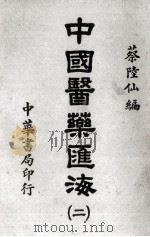 蔡陸仙編
中國醫藥匯海
(二)
中華書局印行